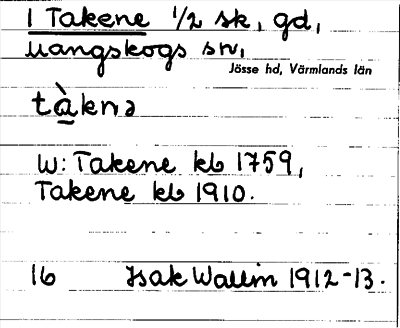 1 Takene 1/2 sk, gd,
Mangskogs sn,
Jösse hd, Värmlands län
tàknə
W: Takene kb 1759,
Takene kb 1910.
16 Isak Wallin 1912-13.